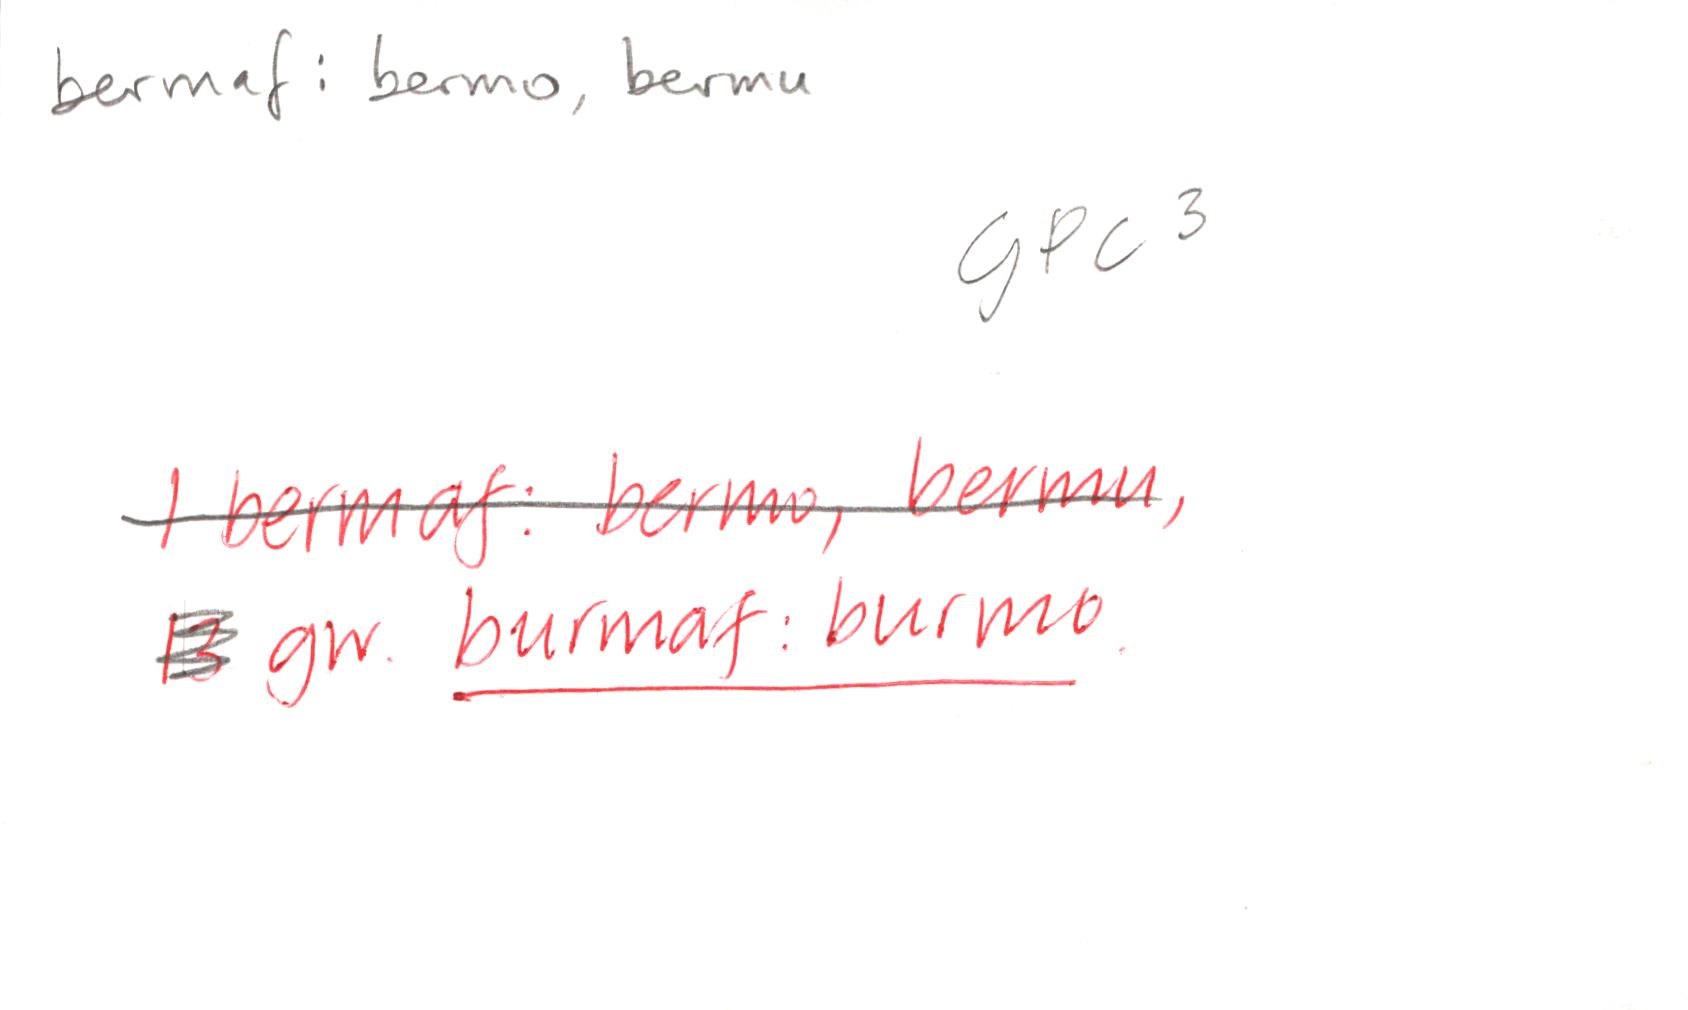 bermaf: bermo, bermu
GPC 3
1 bermaf: bermo, bermu,
gw. burmaf: burmo.